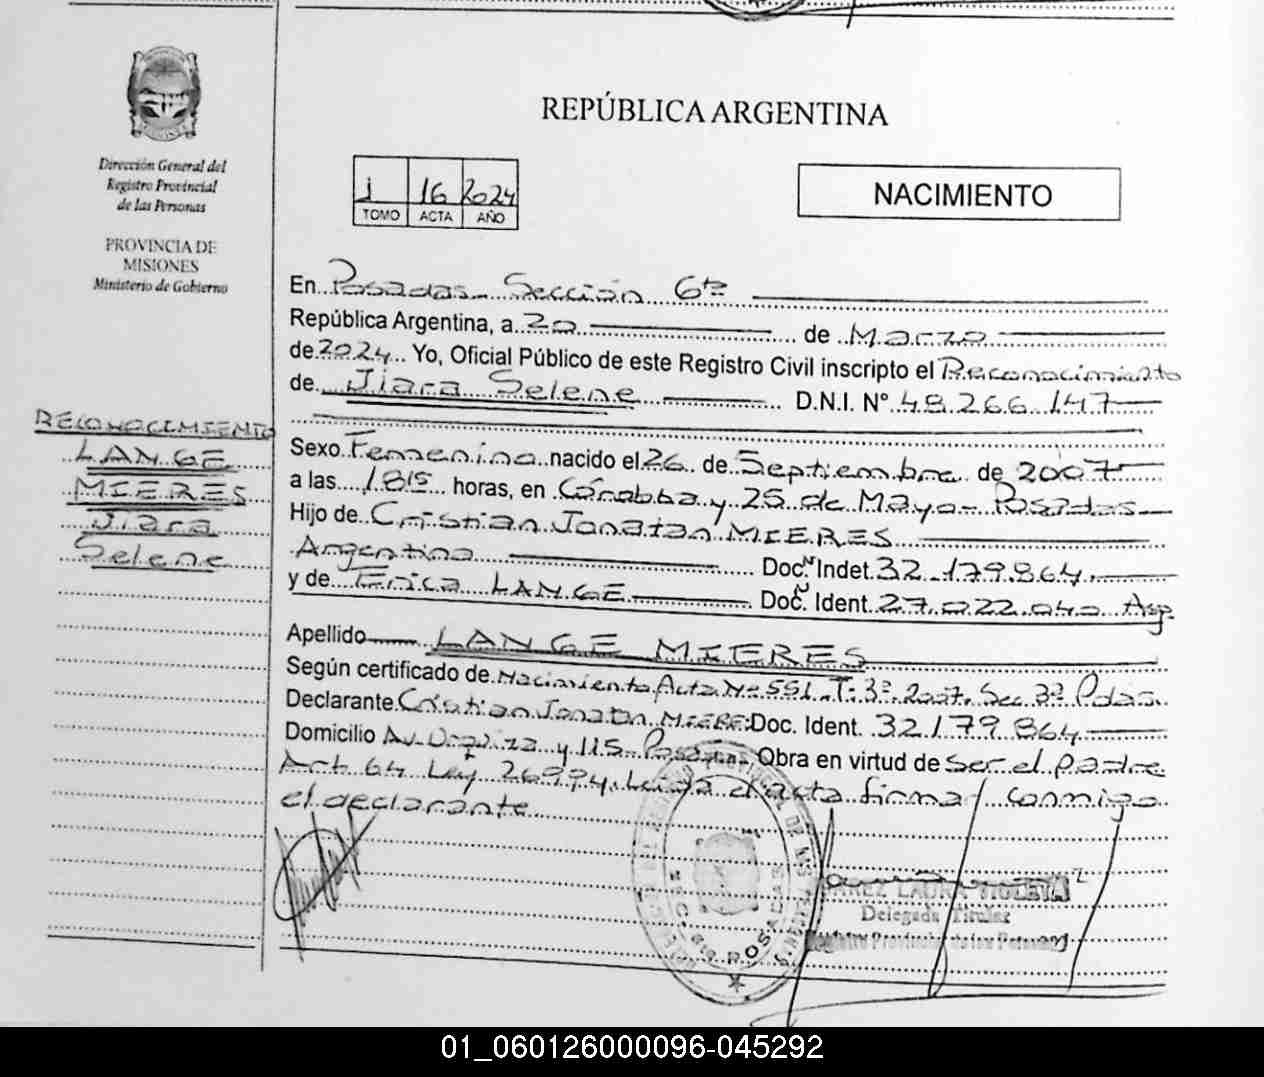 Dirección General del
Registro Provincial
de las Personas
PROVINCIA DE
MISIONES
Ministerio de Gobierno
REPÚBLICA ARGENTINA
1 16 2024
TOMO ACTA AÑO
NACIMIENTO
En Posadas Sección 6ta
República Argentina, a 20 de Marzo
de 2024 Yo, Oficial Público de este Registro Civil inscripto el Reconocimiento
de Jiara Selene D.N.I. N° 48.266.147
Sexo Femenino nacido el 26 de Septiembre de 2007
a las 1815 horas, en Córdoba y 25 de Mayo - Posadas
Hijo de Cristian Jonatan MIERES
Argentino Doc. Indet. 32.179.864
y de Erica LANGE Doc. Ident. 27.022.040 Arg
Apellido LANGE MIERES
Según certificado de Nacimiento Acta N° 551 T: 3° 2007 Sec 3° Pdas.
Declarante Cristian Jonatan MIERES Doc. Ident. 32179.864
Domicilio Av Urquiza y 115 Posadas Obra en virtud de Ser el padre
Art 64 Ley 26994. Leida el acta firma conmigo
el declarante
RECONOCIMIENTO
LANGE
MIERES
Jiara
Selene
LAURA VIOLETA
Delegada Titular
Registro Provincial de las Personas
POSADAS
01_060126000096-045292